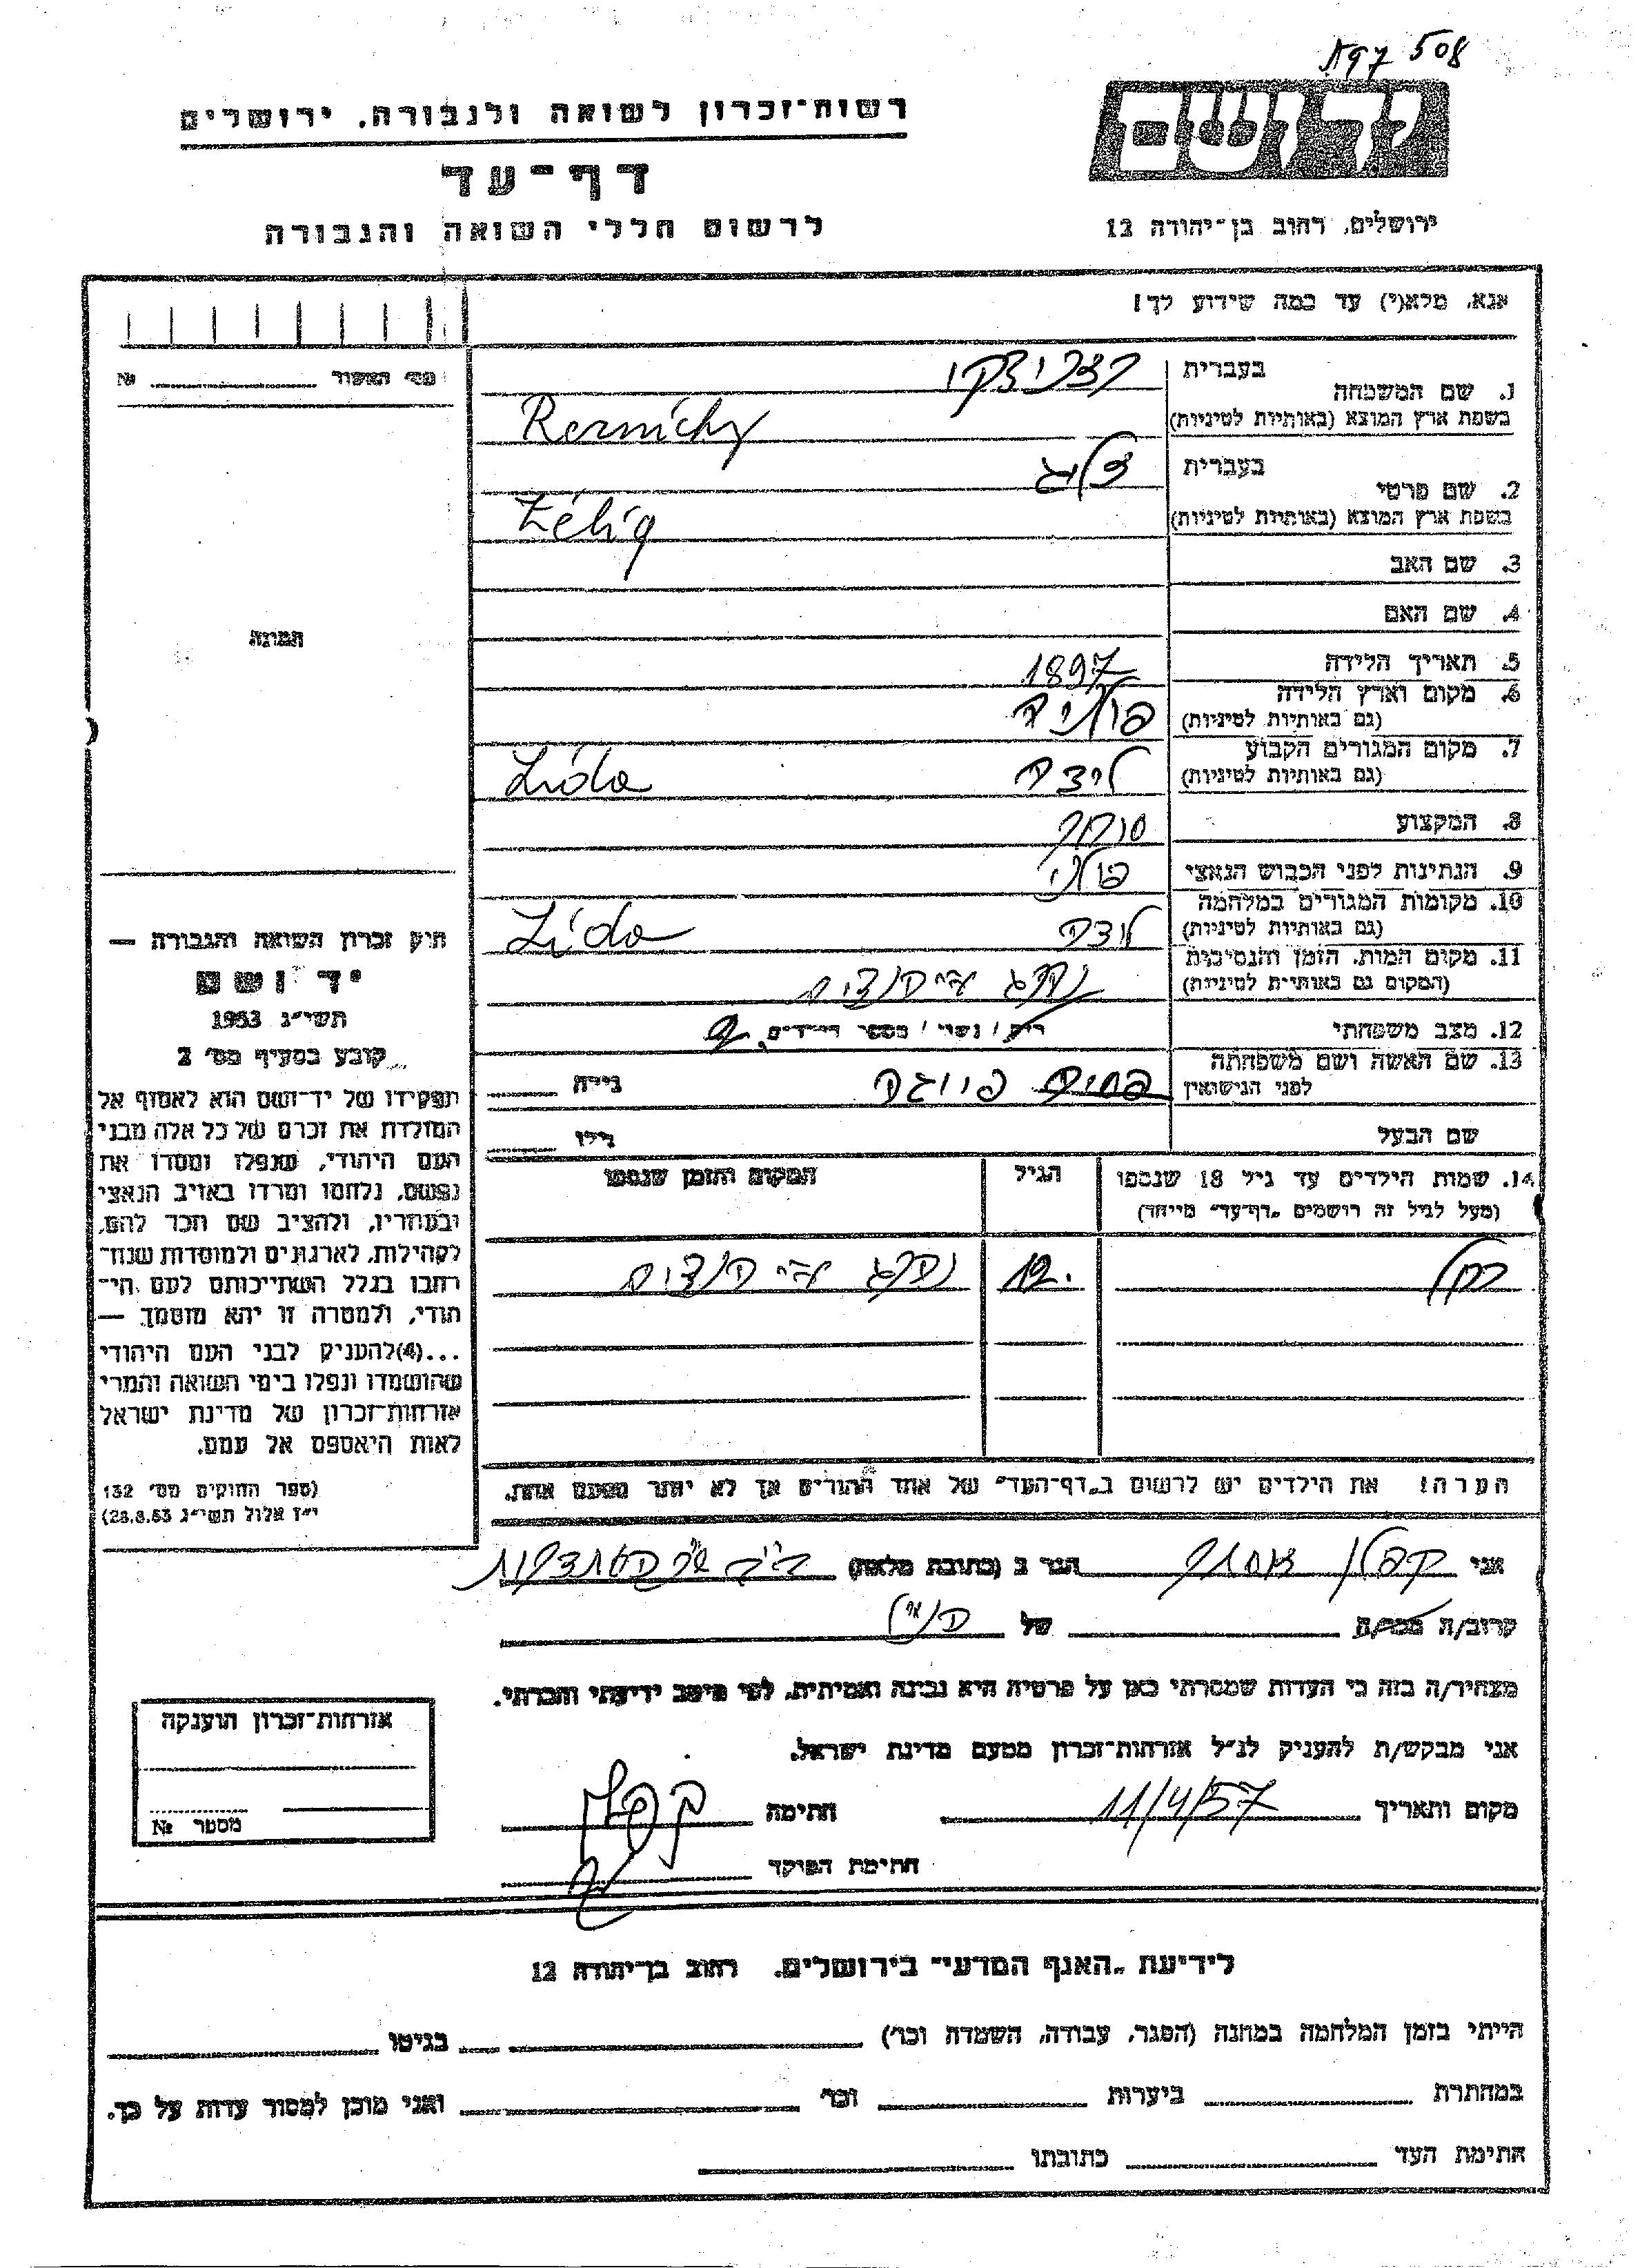 508
רשות־זכרון לשואה ולגבורה, ירושלים
יד ושם
דף־עד
לרשום חללי השואה והגבורה
ירושלים, רחוב בן־יהודה 12
אנא, מלא(י) עד כמה שידוע לך!
מס׳ האשור № 
1. שם המשפחה
בעברית
בשפת ארץ המוצא (באותיות לטיניות)
2. שם פרטי
בעברית זליג
בשפת ארץ המוצא (באותיות לטיניות) Zélig
3. שם האב
4. שם האם
תמונה
5. תאריך הלידה 1897
6. מקום וארץ הלידה פולניה
(גם באותיות לטיניות)
7. מקום המגורים הקבוע לידה Lida
(גם באותיות לטיניות)
8. המקצוע סוחר
9. הנתינות לפני הכבוש הנאצי פולני
10. מקומות המגורים במלחמה לידה Lida
(גם באותיות לטיניות)
11. מקום המות, הזמן והנסיבות נהרג ע״י הנצים
(המקום גם באותיות לטיניות)
12. מצב משפחתי רוק / נשוי / מספר הילדים
13. שם האשה ושם משפחתה
לפני הנישואין גילה
שם הבעל גילו
14. שמות הילדים עד גיל 18 שנספו הגיל המקום והזמן שנספו
(מעל לגיל זה רושמים „דף־עד״ מיוחד)
רחל 12 נהרגה ע״י הנצים
הערה! את הילדים יש לרשום ב„דף־העד״ של אחד ההורים אך לא יותר מפעם אחת.
חוק זכרון השואה והגבורה —
יד ושם
תשי״ג 1953
קובע בסעיף מס׳ 2
תפקידו של יד־ושם הוא לאסוף אל
המולדת את זכרם של כל אלה מבני
העם היהודי, שנפלו ומסרו את
נפשם, נלחמו ומרדו באויב הנאצי
ובעוזריו, ולהציב שם וזכר להם,
לקהילות, לארגונים ולמוסדות שנח־
רבו בגלל השתייכותם לעם הי־
הודי, ולמטרה זו יהא מוסמך —
...(4)להעניק לבני העם היהודי
שהושמדו ונפלו בימי השואה והמרי
אזרחות־זכרון של מדינת ישראל
לאות היאספם אל עמם.
(ספר החוקים מס׳ 132
י״ז אלול תשי״ג 28.8.53)
אני קפלן הגר ב (כתובת מלאה)
קרוב/ה מכר/ה של הנ״ל
מצהיר/ה בזה כי העדות שמסרתי כאן על פרטיה היא נכונה ואמיתית, לפי מיטב ידיעתי והכרתי.
אני מבקש/ת להעניק לנ״ל אזרחות־זכרון מטעם מדינת ישראל.
מקום ותאריך 11/4/57 חתימה
חתימת הפוקד
אזרחות־זכרון הוענקה
מספר №
לידיעת „האגף המדעי״ בירושלים, רחוב בן־יהודה 12
הייתי בזמן המלחמה במחנה (הסגר, עבודה, השמדה וכו׳) בגיטו
במחתרת ביערות וכו׳ ואני מוכן למסור עדות על כך.
חתימת העד כתובתו